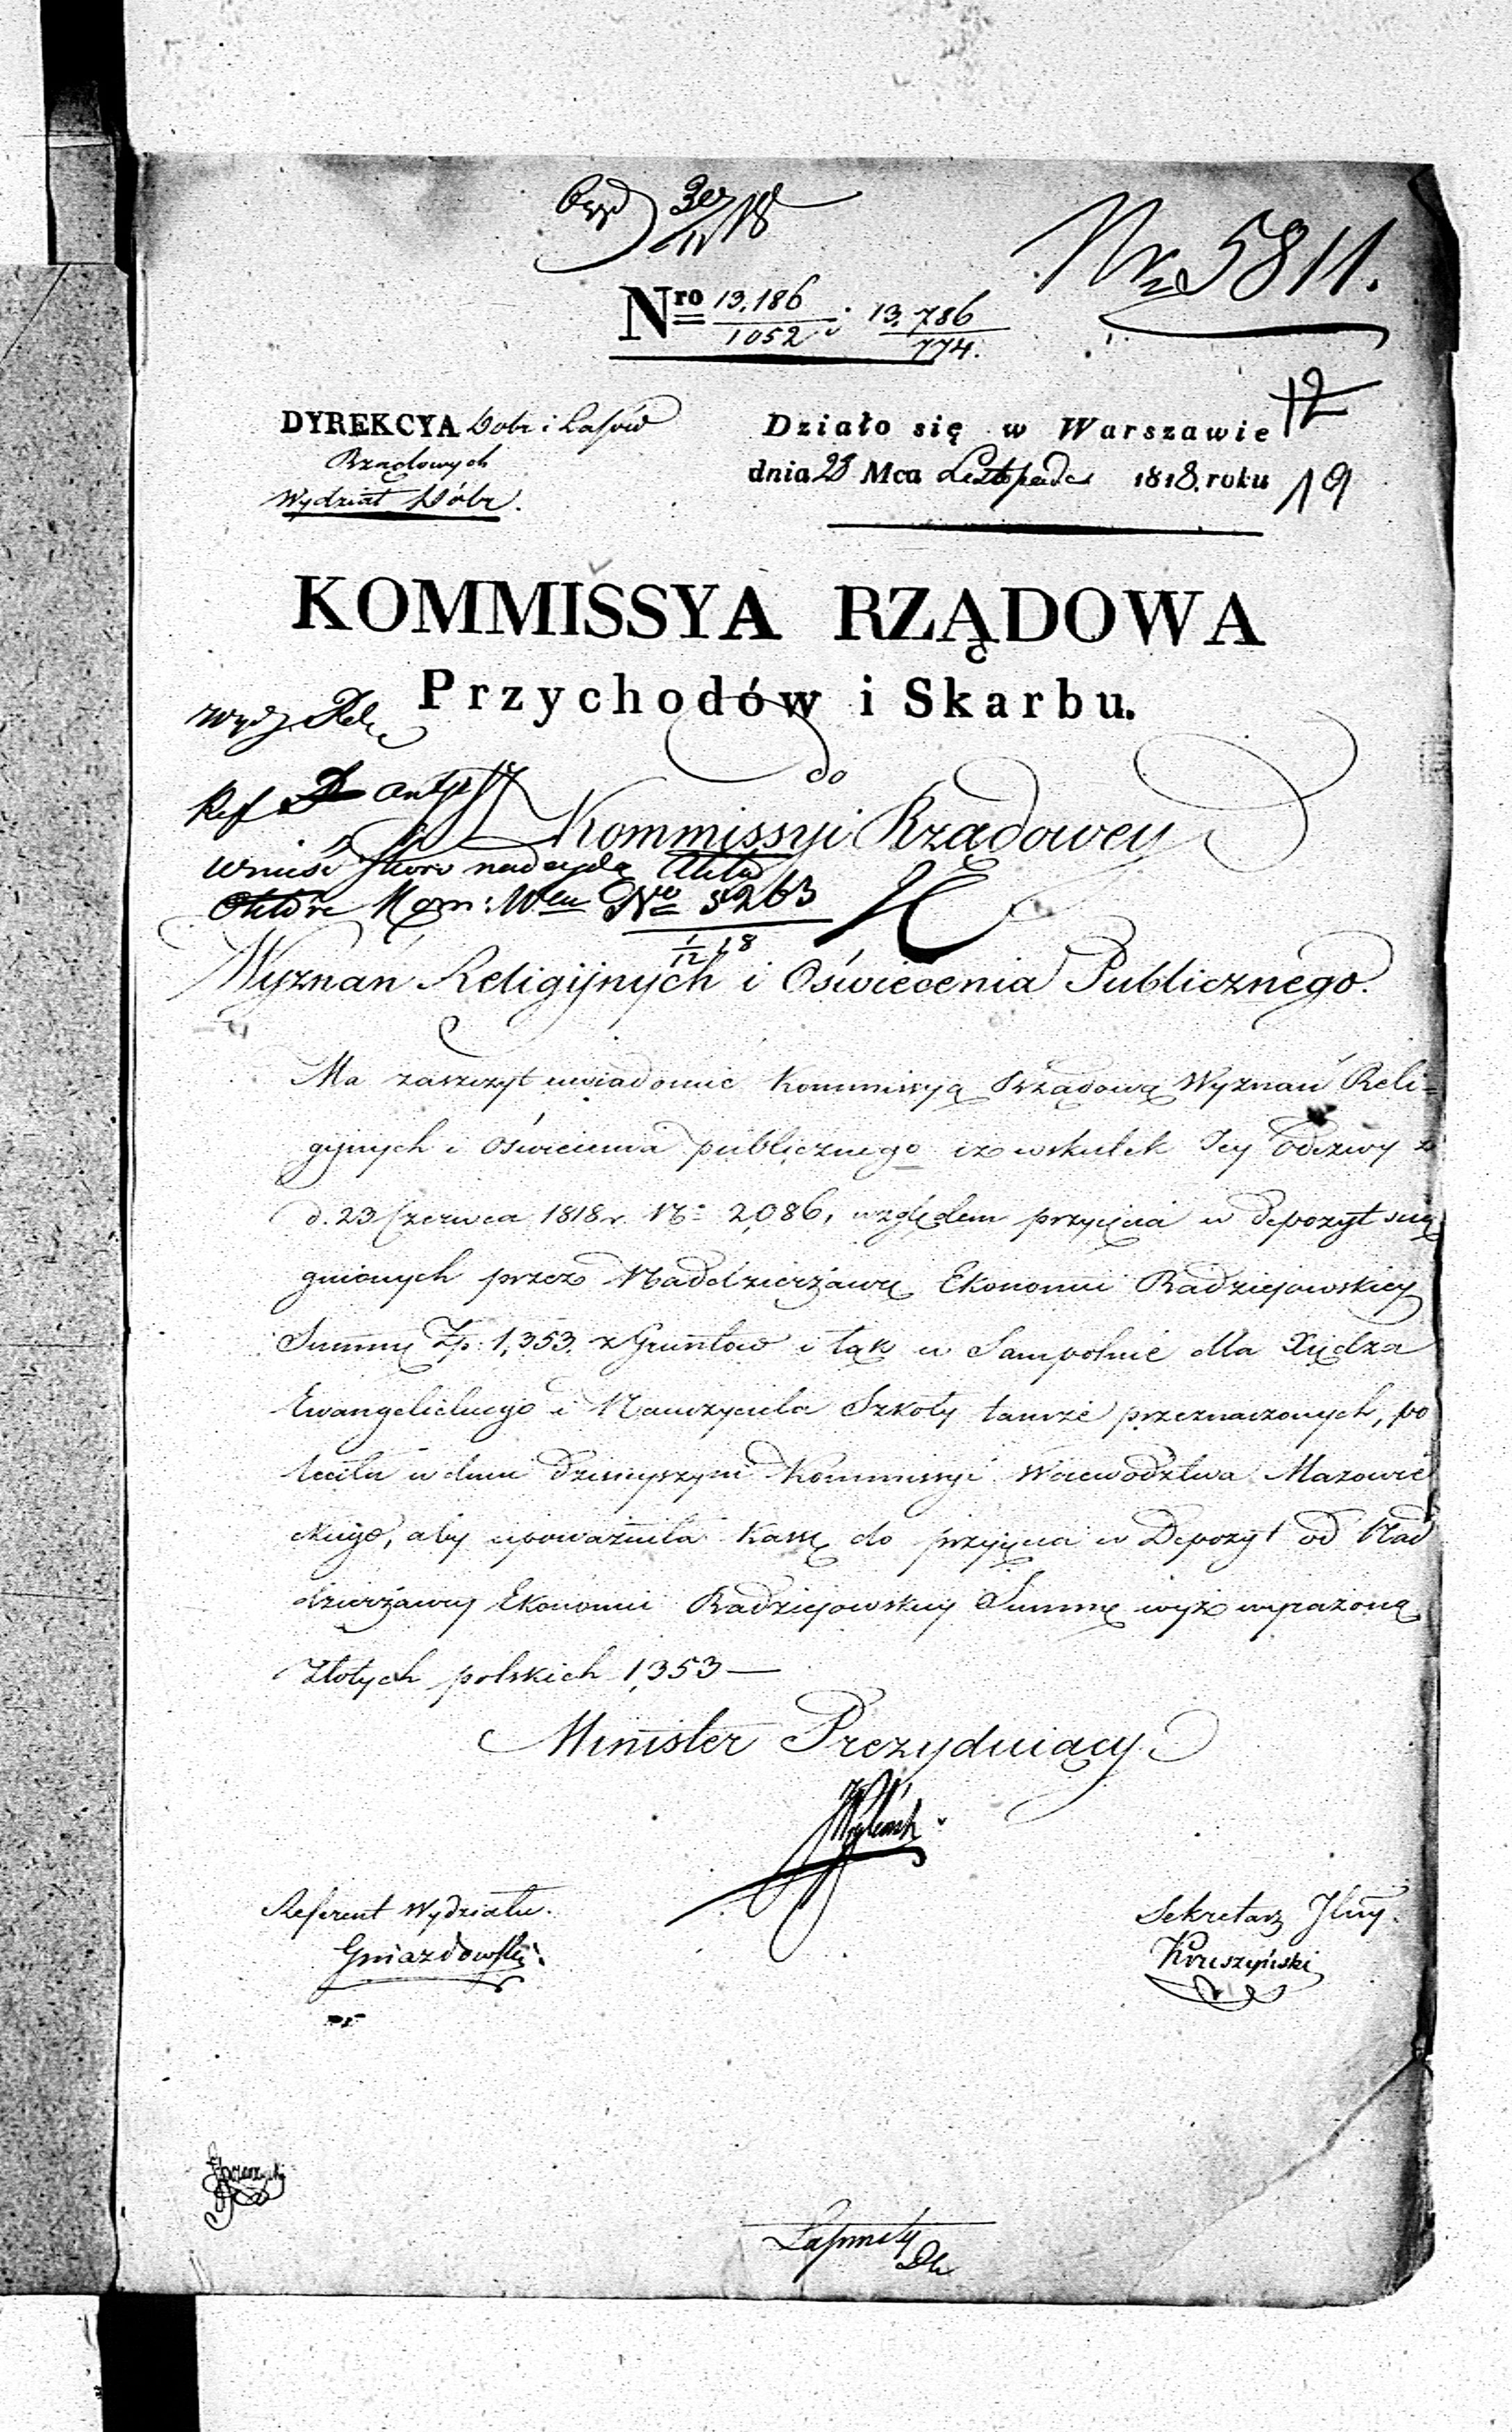 Nro 5811.
Nro 13.186/1052 i 13.786/774.
12
DYREKCYA Dobr i Lasów
Rządowych
Wydział Dóbr.
Działo się w Warszawie
dnia 28 Mca Listopada 1818. roku
19
KOMMISSYA RZĄDOWA
Przychodów i Skarbu.
do
Kommissyi Rządowey
wnieść skoro nadeydą Akta
Które Kom: Nro 5263
1/12 18
Wyznań Religijnych i Oświecenia Publicznego.
Ma zaszczyt uwiadomić Kommissyą Rządową Wyznań Reli=
gijnych i Oświecenia publicznego iż w skutek Jey Odezwy z
d. 23 Czerwca 1818 r. No 2,086, względem przyięcia w depozyt ścią
gnionych przez Naddzierżawcę Ekonomii Radziejowskiey
Summy Zp. 1,353. z Gruntów i łąk w Sampolnie dla Xiędza
Ewangelickiego i Nauczyciela Szkoły tamże przeznaczonych, po
leciła w dniu dzisieyszym Kommissyi Woiewództwa Mazowie
ckiego, aby upoważniła Kassę do przyięcia w Depozyt od Nad
dzierżawcy Ekonomii Radziejowskiey Summę wyż wyrażoną
Złotych polskich 1,353—
Minister Prezyduiący
Referent Wydziału.
Gniazdowski
Sekretarz Jlny.
Kruszyński